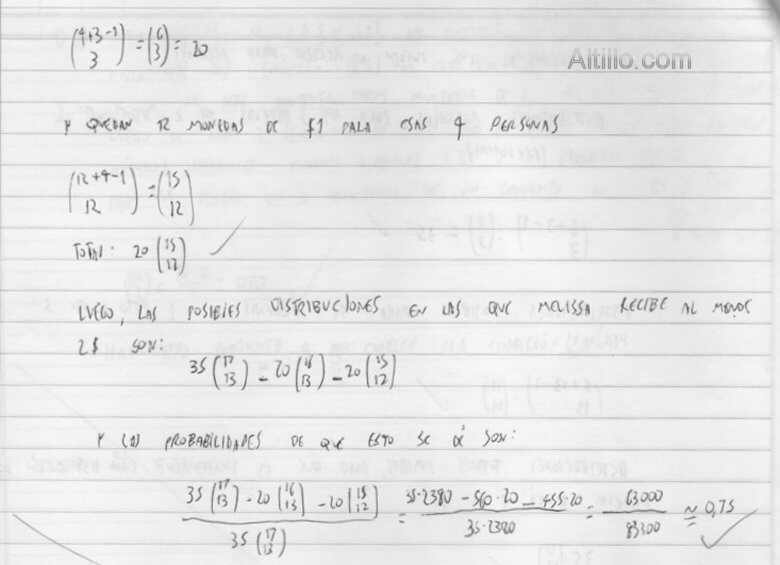 (4+3-1 / 3) = (6 / 3) = 20
Altillo.com
Y QUEDAN 12 MONEDAS DE $1 PARA ESAS 4 PERSONAS
(12+4-1 / 12) = (15 / 12)
TOTAL: 20 (15 / 12) ✓
LUEGO, LAS POSIBLES DISTRIBUCIONES EN LAS QUE MELISSA RECIBE AL MENOS
2$ SON:
35 (17 / 13) - 20 (16 / 13) - 20 (15 / 12)
Y LAS PROBABILIDADES DE QUE ESTO SE DÉ SON:
(35 (17 / 13) - 20 (16 / 13) - 20 (15 / 12)) / (35 (17 / 13)) = (35·2380 - 560·20 - 455·20) / (35·2380) = 63000 / 83300 ≈ 0,75 ✓